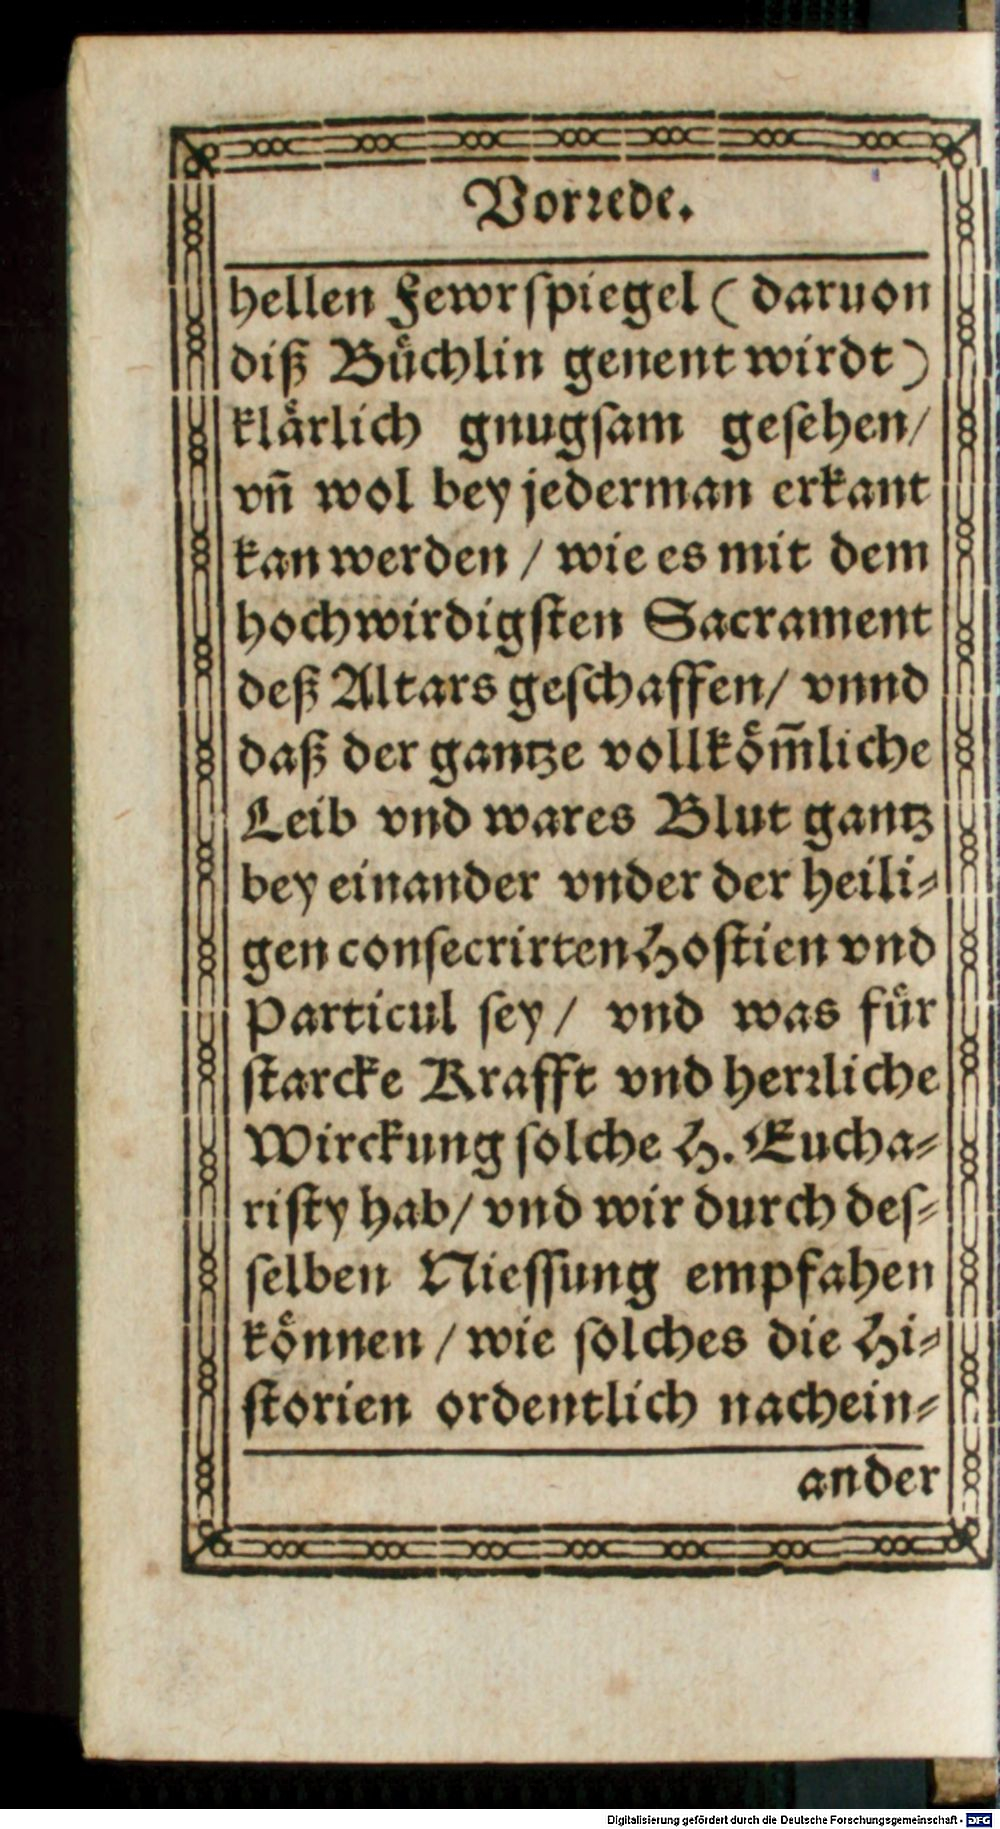 Vorꝛede.
hellen Fewrſpiegel ( daruon
diß Buͤchlin genent wirdt )
klaͤrlich gnugſam geſehen/
vn̄ wol bey jederman erkant
kan werden / wie es mit dem
hochwirdigſten Sacrament
deß Altars geſchaffen/ vnnd
daß der gantze vollkoͤm̄liche
Leib vnd wares Blut gantz
bey einander vnder der heili⸗
gen conſecrirten Hoſtien vnd
Particul ſey / vnd was fuͤr
ſtarcke Krafft vnd herꝛliche
Wirckung ſolche H. Eucha⸗
riſty hab/ vnd wir durch deſ⸗
ſelben Nieſſung empfahen
koͤnnen / wie ſolches die Hi⸗
ſtorien ordentlich nachein⸗
ander
Digitalisierung gefördert durch die Deutsche Forschungsgemeinschaft - DFG